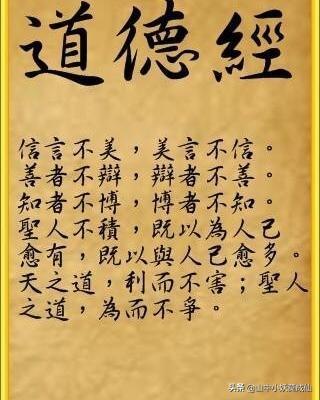 道德經
信言不美，美言不信。
善者不辯，辯者不善。
知者不博，博者不知。
聖人不積，既以為人己
愈有，既以與人己愈多。
天之道，利而不害；聖人
之道，為而不爭。
头条@山中小妖要成仙